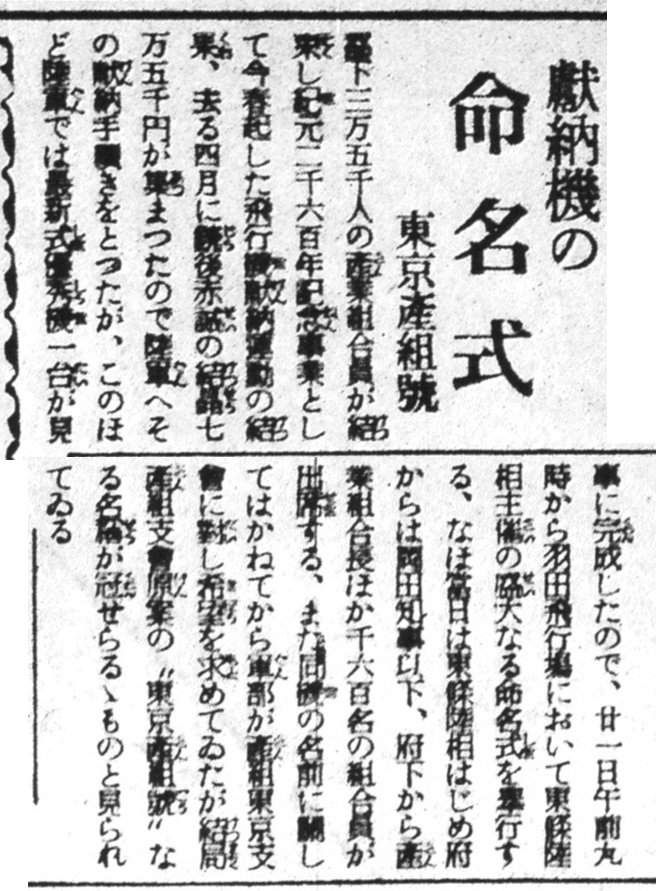 獻納機の
命名式
東京產組號
下三万五千人の產業組合員が結
束し紀元二千六百年記念事業とし
て今春起した飛行機獻納運動の結
果、去る四月に銃後赤誠の結晶七
万五千円が集まつたので陸軍へそ
の獻納手續きをとつたが、このほ
ど陸軍では最新式優秀機一台が見
事に完成したので、廿一日午前九
時から羽田飛行場において東條陸
相主催の盛大なる命名式を擧行す
る、なほ當日は東條陸相はじめ府
からは岡田知事以下、府下から產
業組合長ほか千六百名の組合員が
出席する、また同機の名前に關し
てはかねてから軍部が產組東京支
會に對し希望を求めてゐたが結局
產組支會原案の〝東京產組號〟な
る名稱が冠せらるゝものと見られ
てゐる